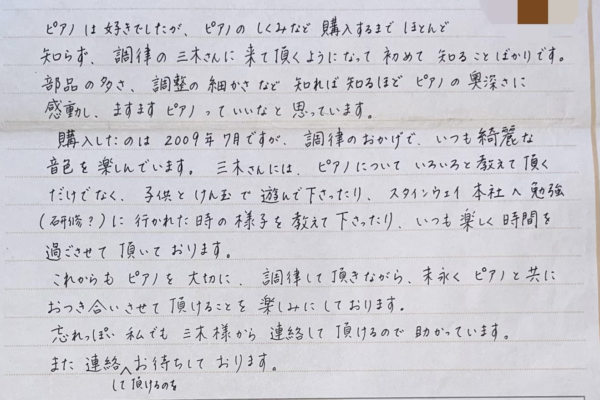 ピアノは好きでしたが、ピアノのしくみなど購入するまでほとんど
知らず、調律の三木さんに来て頂くようになって初めて知ることばかりです。
部品の多さ、調整の細かさなど知れば知るほどピアノの奥深さに
感動し、ますますピアノっていいなと思っています。
購入したのは2009年7月ですが、調律のおかげで、いつも綺麗な
音色を楽しんでいます。三木さんには、ピアノについていろいろと教えて頂く
だけでなく、子供とけん玉で遊んで下さったり、スタインウェイ本社へ勉強
(研修?)に行かれた時の様子を教えて下さったり、いつも楽しく時間を
過ごさせて頂いております。
これからもピアノを大切に、調律して頂きながら、末永くピアノと共に
おつき合いさせて頂けることを楽しみにしております。
忘れっぽい私でも三木様から連絡して頂けるので助かっています。
また連絡お待ちしております。
して頂けるのを